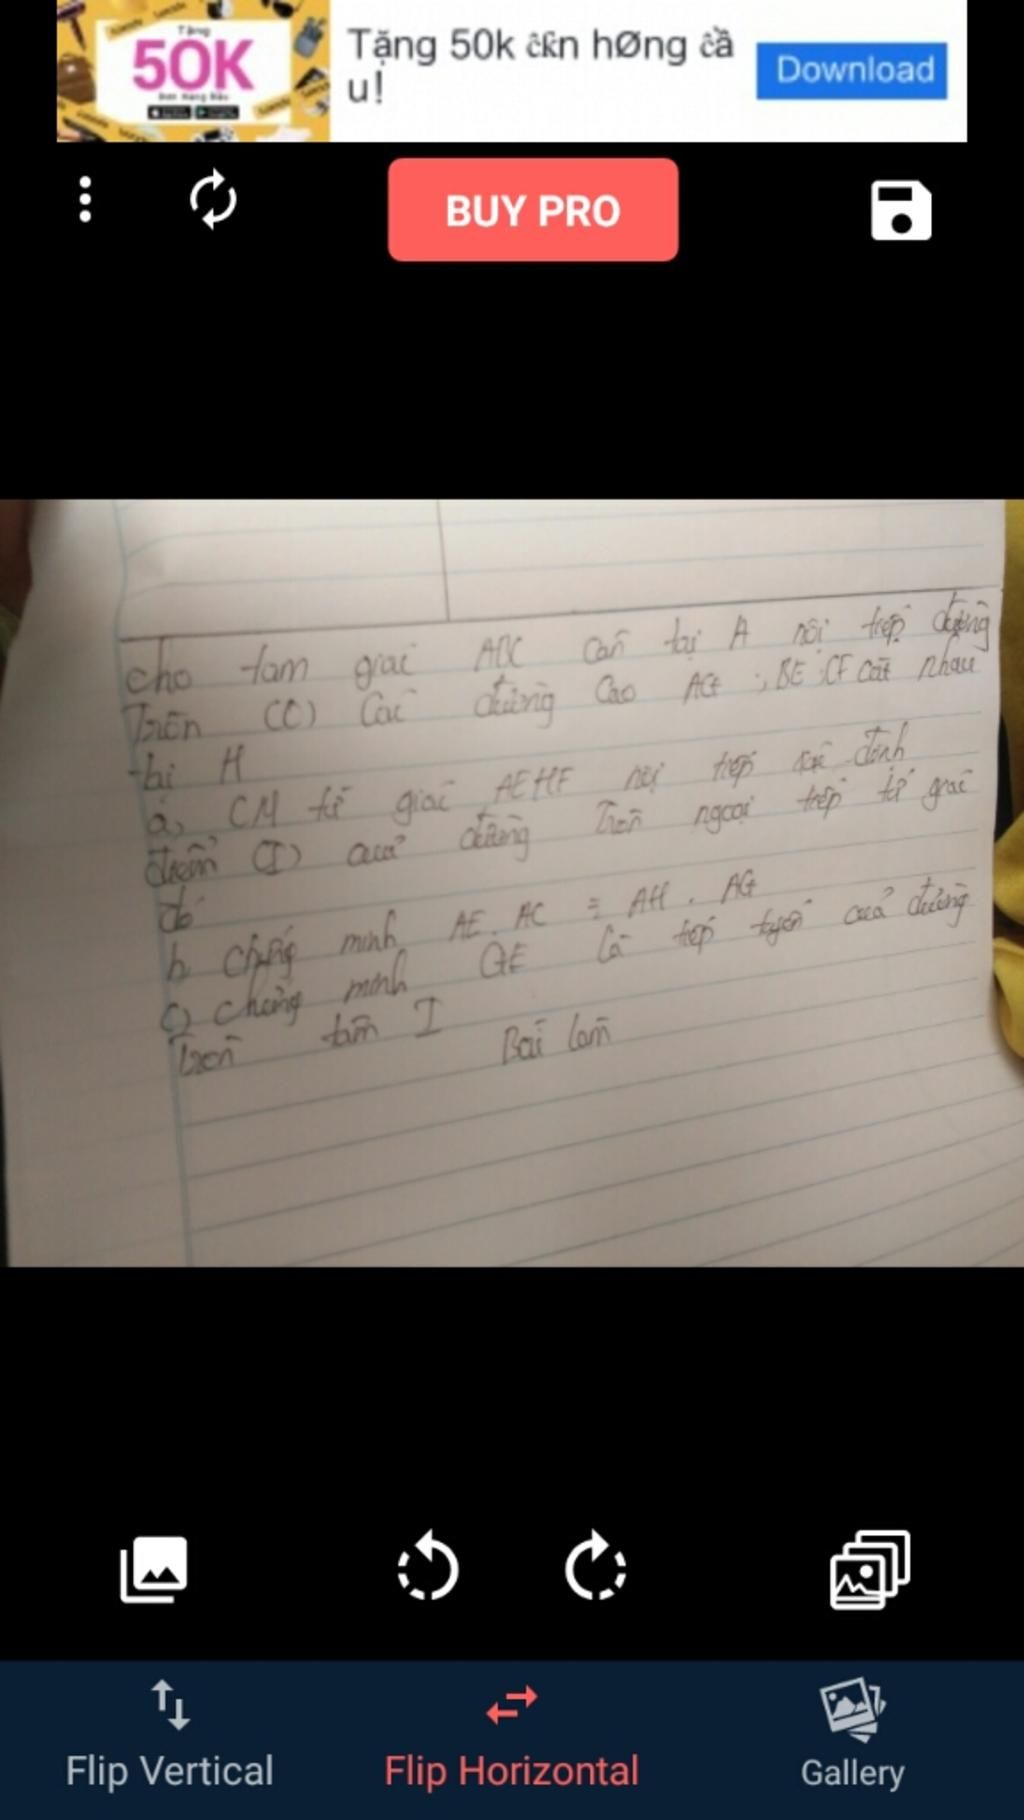 Tặng
50K
Đơn Hàng Đầu
Tặng 50k ĉƙn hØng ĉầ
u!
Download
BUY PRO
cho tam giac ABC cân tại A nội tiếp đường
Tròn (C) Các đường Cao AG ; BE ; CF cắt nhau
tại H
a, CM tứ giác AEHF nội tiếp xác định
điểm (I) của đường Tròn ngoại tiếp tứ giác
đó
b Chứng minh AE . AC = AH . AG
c) chứng minh GE là tiếp tuyến của đường
Tròn tâm I
Bài làm
Flip Vertical
Flip Horizontal
Gallery